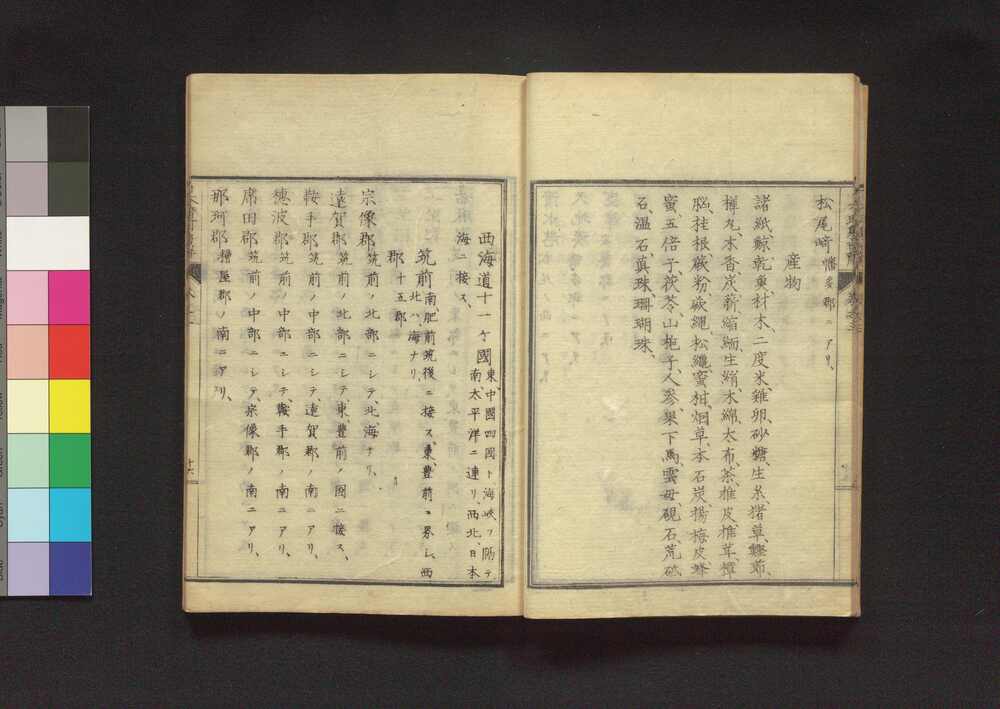 松尾崎 幡多郡ニアリ、
産物
諸紙、鯨、乾魚、材木、二度米、雞卵、砂糖、生糸、猪、草、鰹節、
樟、丸木、香、炭、薪、縮緬、生絹、木綿、太布、茶、椎皮、椎茸、樟
脳、桂根、蕨粉、蕨繩、松、蜜柑、烟草、本石炭、楊梅皮、蜂
蜜、五倍子、茯苓、山梔子、人参、果下馬、雲母、硯石、荒砥
石、温石、真珠、珊瑚珠、
西海道十一ヶ國 東、中國四國ト海峡ヲ隔テ
南、太平洋ニ連リ、西北、日本
海ニ接ス、
筑前 南、肥前筑後ニ接ス、東豊前ニ界シ、西
北ハ海ナリ、
郡 十五郡
宗像郡 筑前ノ北部ニシテ、北、海ナリ、
遠賀郡 筑前ノ北部ニシテ、東豊前ノ國ニ接ス、
鞍手郡 筑前ノ中部ニシテ、遠賀郡ノ南ニアリ、
穂波郡 筑前ノ中部ニシテ、鞍手郡ノ南ニアリ、
席田郡 筑前ノ中部ニシテ、宗像郡ノ南ニアリ、
那珂郡 糟屋郡ノ南ニアリ、